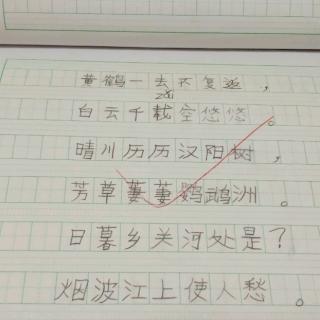 黄鹤一去不复返，
zǎi
白云千载空悠悠。
晴川历历汉阳树，
芳草萋萋鹦鹉洲。
日暮乡关河处是？
烟波江上使人愁。